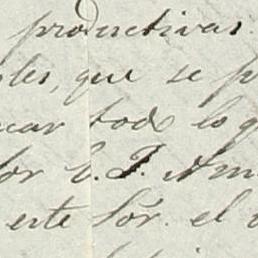 productivas.
les, que se p
car todo lo q
or C. J. Am
este Sór. el